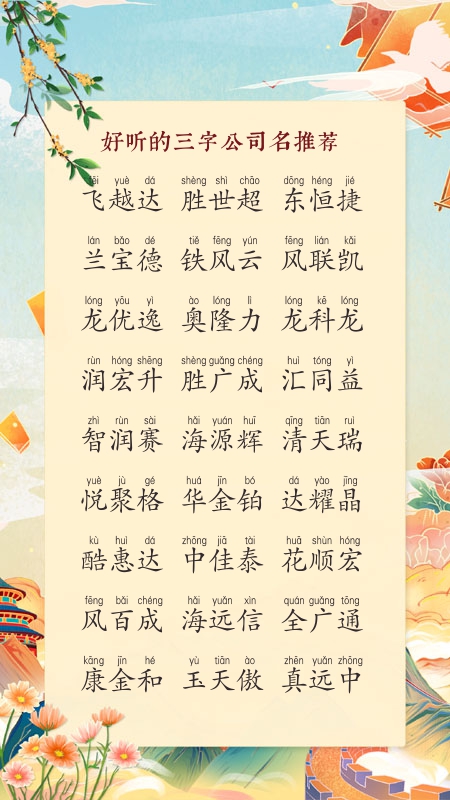 好听的三字公司名推荐
fēi yuè dá shèng shì chāo dōng héng jié
飞越达 胜世超 东恒捷
lán bǎo dé tiě fēng yún fēng lián kǎi
兰宝德 铁风云 风联凯
lóng yōu yì ào lóng lì lóng kē lóng
龙优逸 奥隆力 龙科龙
rùn hóng shēng shèng guǎng chéng huì tóng yì
润宏升 胜广成 汇同益
zhì rùn sài hǎi yuán huī qīng tiān ruì
智润赛 海源辉 清天瑞
yuè jù gé huá jīn bó dá yào jīng
悦聚格 华金铂 达耀晶
kù huì dá zhōng jiā tài huā shùn hóng
酷惠达 中佳泰 花顺宏
fēng bǎi chéng hǎi yuǎn xìn quán guǎng tōng
风百成 海远信 全广通
kāng jīn hé yù tiān ào zhēn yuǎn zhōng
康金和 玉天傲 真远中